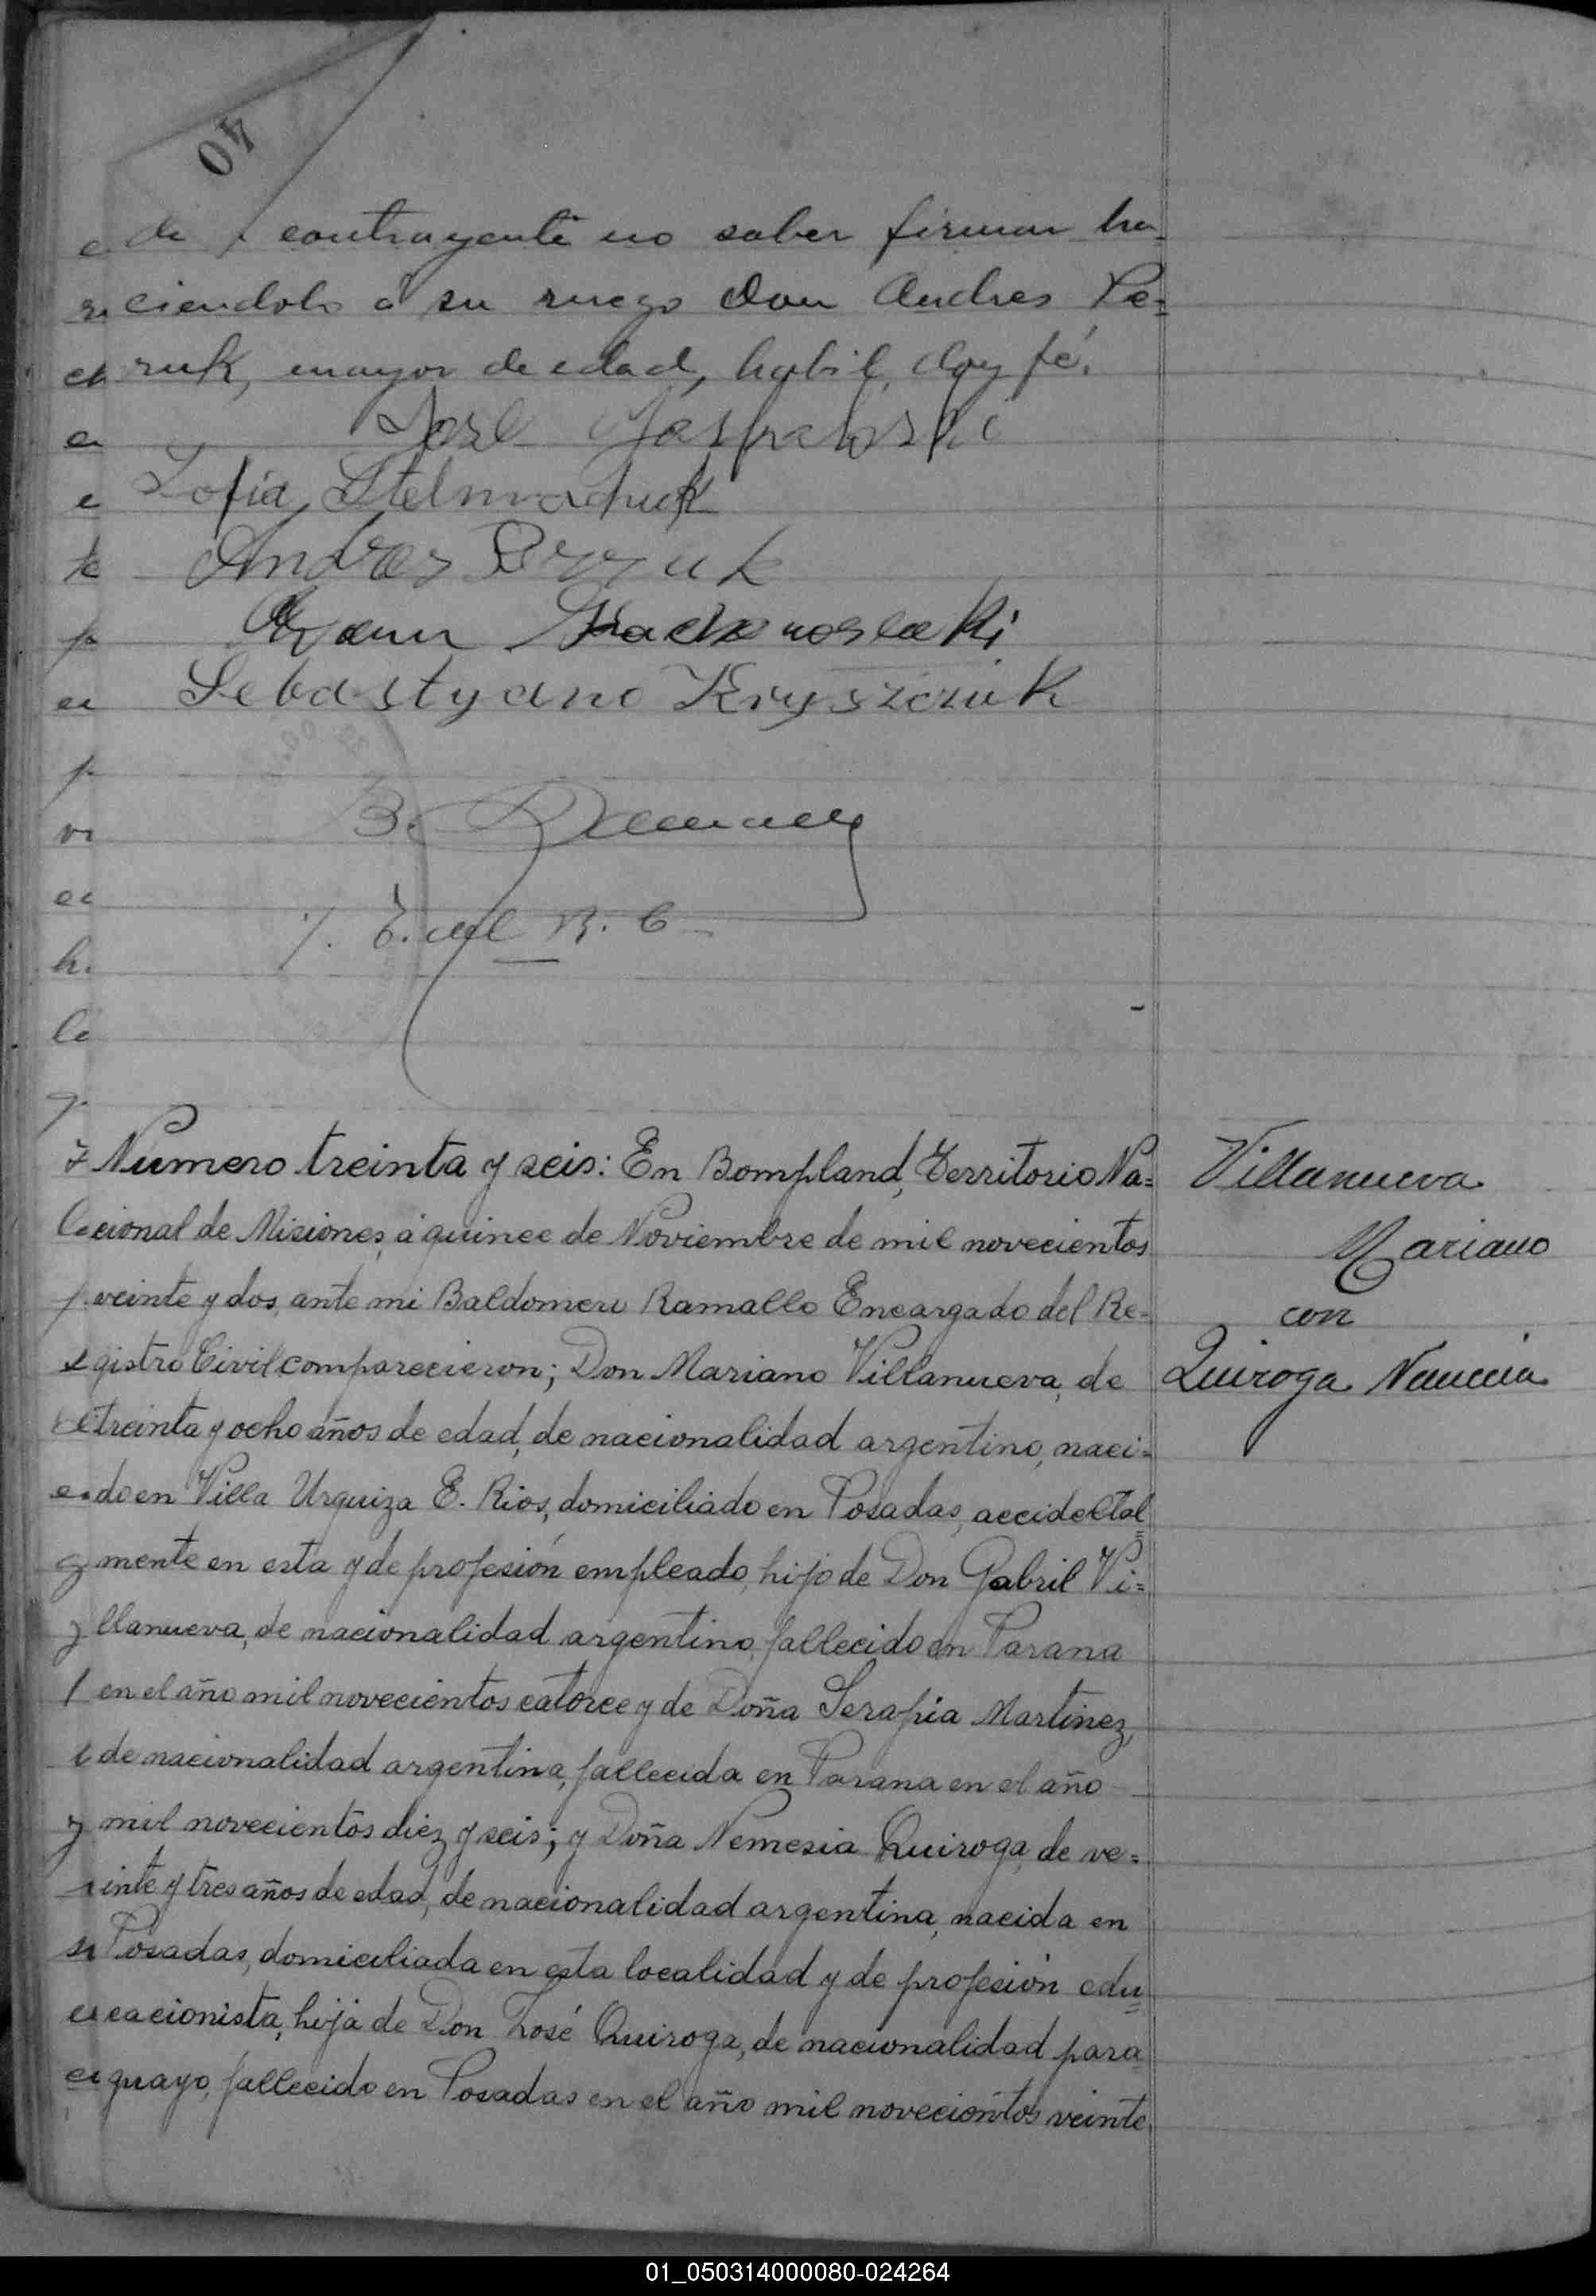 40
de contrayente no saber firmar ha-
ciendolo á su ruego don Andres Pe=
ruk, mayor de edad, habil, doy fé.
José
Sofia Stelmachuk
Andres
Sebastyano Kryszczuk
B.
E. del R. C
Número treinta y seis: En Bompland, Territorio Na=
cional de Misiones, á quince de Noviembre de mil novecientos
veinte y dos, ante mi Baldomero Ramallo Encargado del Re-
gistro Civil comparecieron; Don Mariano Villanueva, de
treinta y ocho años de edad, de nacionalidad argentino, naci=
do en Villa Urquiza E. Rios, domiciliado en Posadas, accideltal
mente en esta y de profesión empleado, hijo de Don Gabril Vi=
llanueva, de nacionalidad argentino, fallecido en Parana
en el año mil novecientos catorce y de Doña Serapia Martinez,
de nacionalidad argentina, fallecida en Parana en el año
mil novecientos diez y seis; y Doña Nemesia Quiroga, de ve=
inte y tres años de edad, de nacionalidad argentina, nacida en
Posadas, domiciliada en esta localidad y de profesión edu=
cacionista, hija de Don José Quiroga, de nacionalidad para
guayo, fallecido en Posadas en el año mil novecientos veinte
Villanueva
Mariano
con
Quiroga
01_050314000080-024264